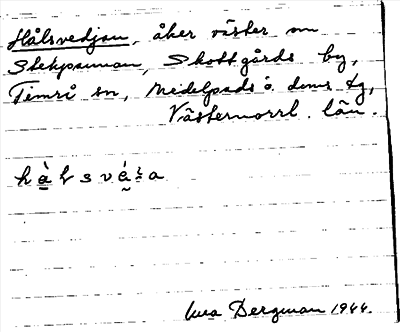 Hålsvedjan, åker väster om
Stekpannan, Skottgårds by,
Timrå sn, Medelpads ö. doms dg,
Västernorrl. län.
Bergman 1944.